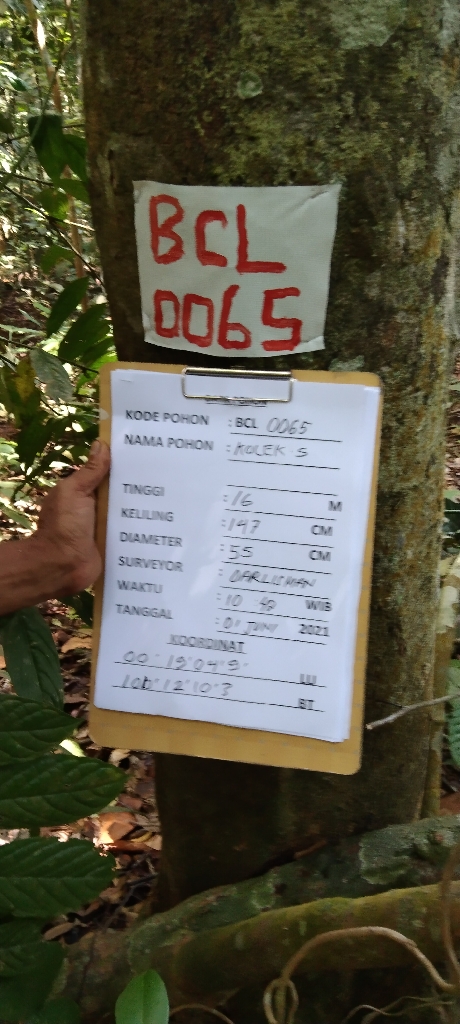 BCL
0065
KODE POHON : BCL 0065
NAMA POHON : KOLEK S
TINGGI : 16 M
KELILING : 147 CM
DIAMETER : 55 CM
SURVEYOR : DARLISMAN
WAKTU : 10 42 WIB
TANGGAL : 01 JUNI 2021
KOORDINAT
00° 19' 04" 9 LU
100° 12' 10" 3 BT